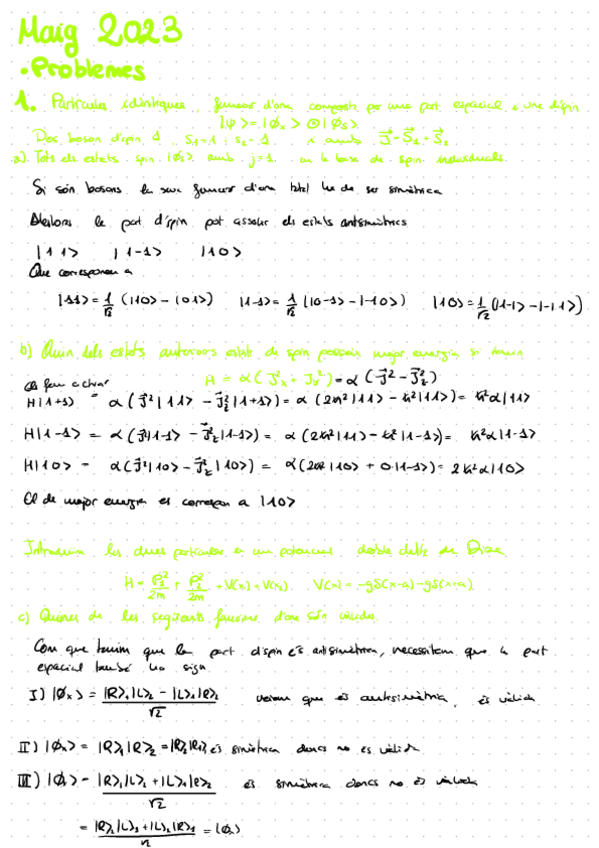 Maig 2023
• Problemes
1. Partícules idèntiques, funció d'ona composta per una part espacial i una d'spin
|ψ> = |ϕx> ⊗ |ϕs>
Dos bosons d'spin 1 s₁=1 ; s₂=1 i amb J⃗ = S⃗₁ + S⃗₂
a) Tots els estats spin |ϕs> amb j=1 en la base de spin individuals.
Si són bosons la seva funció d'ona total ha de ser simètrica
Aleshores la part d'spin pot assolir els estats antisimètrics
|1 1> |1 -1> |1 0>
Que corresponen a
|11> = 1/√2 (|10> - |01>) |1-1> = 1/√2 (|0-1> - |-10>) |10> = 1/√2 (|1-1> - |-1 1>)
b) Quin dels estats anteriors estats de spin posseeix major energia si tenim
H = α(J²x + Jy²) = α(J⃗² - J⃗z²)
fem actuar
H|1+1> = α(J⃗²|11> - J⃗z²|1+1>) = α(2ħ²|11> - ħ²|11>) = ħ²α|11>
H|1-1> = α(J⃗²|1-1> - J⃗z²|1-1>) = α(2ħ²|11> - ħ²|1-1>) = ħ²α|1-1>
H|10> = α(J⃗²|10> - J⃗z²|10>) = α(2ħ²|10> + 0|1-1>) = 2ħ²α|10>
El de major energia es correspon a |10>
Introduim les dues partícules a un potencial doble delta de Dirac
H = P₁²/2m + P₂²/2m + V(x₁) + V(x₂). V(x) = -gδ(x-a) - gδ(x+a)
c) Quines de les següents funcions d'ona són vàlides.
Com que tenim que la part d'spin és antisimètrica, necessitem que la part
espacial també ho sigui
I) |ϕx> = |R>₁|L>₂ - |L>₁|R>₂ / √2 veiem que és antisimètria, és vàlida
II) |ϕx> = |R>₁|R>₂ = |R>₂|R>₁ és simètrica doncs no és vàlida
III) |ϕx> = |R>₁|L>₂ + |L>₁|R>₂ / √2 és simètrica doncs no és vàlida
= |R>₂|L>₁ + |L>₂|R>₁ / √2 = |ϕx>